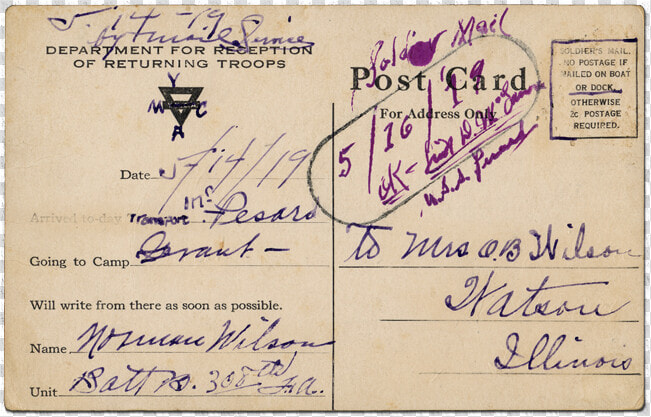 5-14-19
DEPARTMENT FOR RECEPTION
OF RETURNING TROOPS
Y
M C
A
Date 5/14/19
Arrived to-day
Transport Pesaro
Going to Camp Grant -
Will write from there as soon as possible.
Name Norman Wilson
Unit Batt D. 3 th F.A.
Soldier Mail
Post Card
For Address Only
5/16/19
OK -
U.S.S.
SOLDIER'S MAIL.
NO POSTAGE IF
MAILED ON BOAT
OR DOCK.
OTHERWISE
2c. POSTAGE
REQUIRED.
To Mrs O.B Wilson
Watson
Illinois